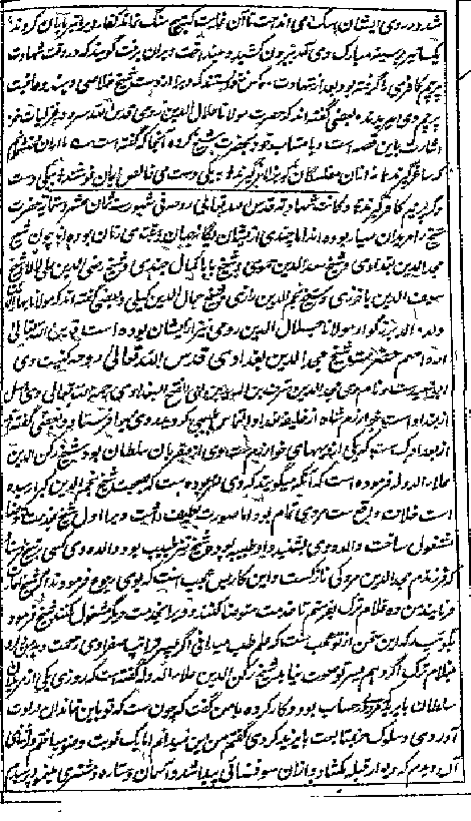 شد و در روی ایشان سنگ می انداخت تا آن غایت که هیچ سنگ نماند کفار ویرا تیرباران کردند
یک تیر بر سینه مبارک وی آمد بیرون کشید و بینداخت و بران برفت گویند که در وقت شهادت
پرچم کافری را گرفته بود بعد از شهادت ده کس نتوانستند که ویرا از دست شیخ خلاص دهند عاقبت
پرچم وی را ببریدند بعضی گفته اند که حضرت مولانا جلال الدین رومی قدس الله سره در غزلیات خود
اشارت باین قصه است و بانتساب خود بحضرت شیخ کرده آنجا که گفته است
که ساغر گیرند نه از آن مفلسکان که بز لاغر گیرند بیکی دست می خالص ایمان نوشند بیکی دست
دگر پرچم کافر گیرند و کانت شهادته قدس الله تعالی روحه فی شهور سنة ثمان عشر و ستمائة حضرت
شیخ را مریدان بسیار بوده اند اما چندی از ایشان یگانه جهان و مقتدای زمان بوده اند چون شیخ
مجد الدین بغدادی و شیخ سعد الدین حموی و شیخ بابا کمال جندی و شیخ رضی الدین علی لالا و شیخ
سیف الدین باخرزی و شیخ نجم الدین رازی و شیخ جمال الدین گیلی و بعضی گفته اند که مولانا بهاء الدین
ولد والد بزرگوار مولانا جلال الدین رومی نیز از ایشان بوده است قدس الله تعالی
اسرارهم حضرت شیخ مجد الدین بغدادی قدس الله تعالی روحه کنیت وی
ابو سعید است و نام وی مجد الدین شرف بن المؤید بن ابی الفتح البغدادی رحمه الله تعالی وی اصل
از بغداد است خوارزم شاه از خلیفه بغداد التماس طبیبی کرد پدر وی را بفرستاد و بعضی گفته اند
از بغدادک است که یکی از دیهای خوارزم است وی از مقربان سلطان بود شیخ رکن الدین
علاء الدوله فرموده است که آنکه میگویند که وی امرد بوده است که بصحبت شیخ نجم الدین کبرا رسیده
است خلاف واقع است مردی تمام بود اما صورت لطیف داشت ویرا اول شیخ بخدمت متوضا
مشغول ساخت والده وی بشنید و او طبیبه بود و شیخ نیز طبیب بود والده وی کسی پیش شیخ فرستاد
که فرزندم مجد الدین مردکی نازک است و این کار بس عجب است که بوی رجوع فرمودند اگر شیخ
فرمایند من ده غلام ترک بفرستم تا خدمت متوضا کنند و ویرا بخدمت دیگر مشغول کنند شیخ فرمود
بگوئید که این سخن از تو عجب است که علم طب میدانی اگر پسر ترا تب صفراوی زحمت دهد من دارو
بغلام ترک دهم پسر تو صحت نیابد شیخ رکن الدین علاء الدوله گفته است که روزی یکی از مریدان
سلطان بایزید حساب بود و کار کرده بامن گفت که چون است که تو باین خاندان ارادت
آوردی و سلوک متابعت بایزید نکردی گفتم من این نمیدانم اما یک نوبت وضو میساختم
آن دیدم که دیوار قبله بگشاد و ازان سو فضائی پیدا شد و آسمان و ستاره مشتری مینمود پرسیدم